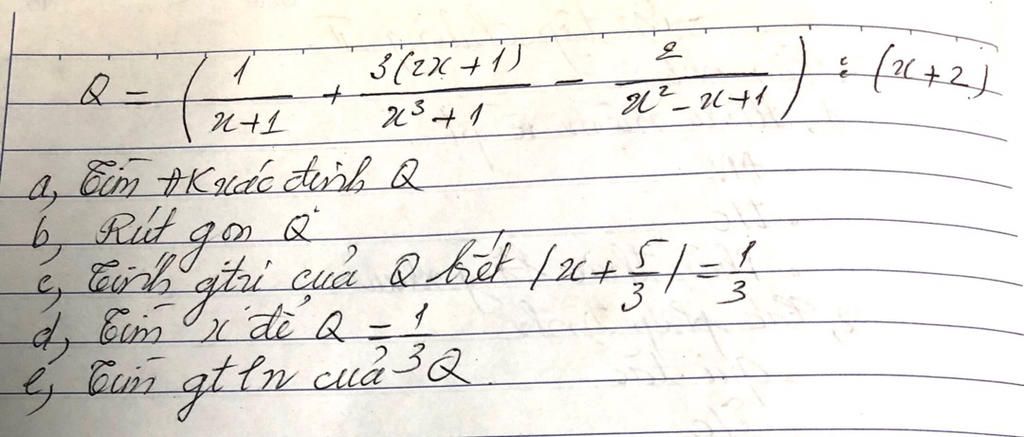 Q = ( 1/(x+1) + 3(2x+1)/(x³+1) - 2/(x²-x+1) ) : (x+2)
a, Tìm ĐK xác định Q
b, Rút gọn Q
c, Tính gtrị của Q biết |x + 5/3| = 1/3
d, Tìm x để Q = 1/3
e, Tìm gtln của Q.